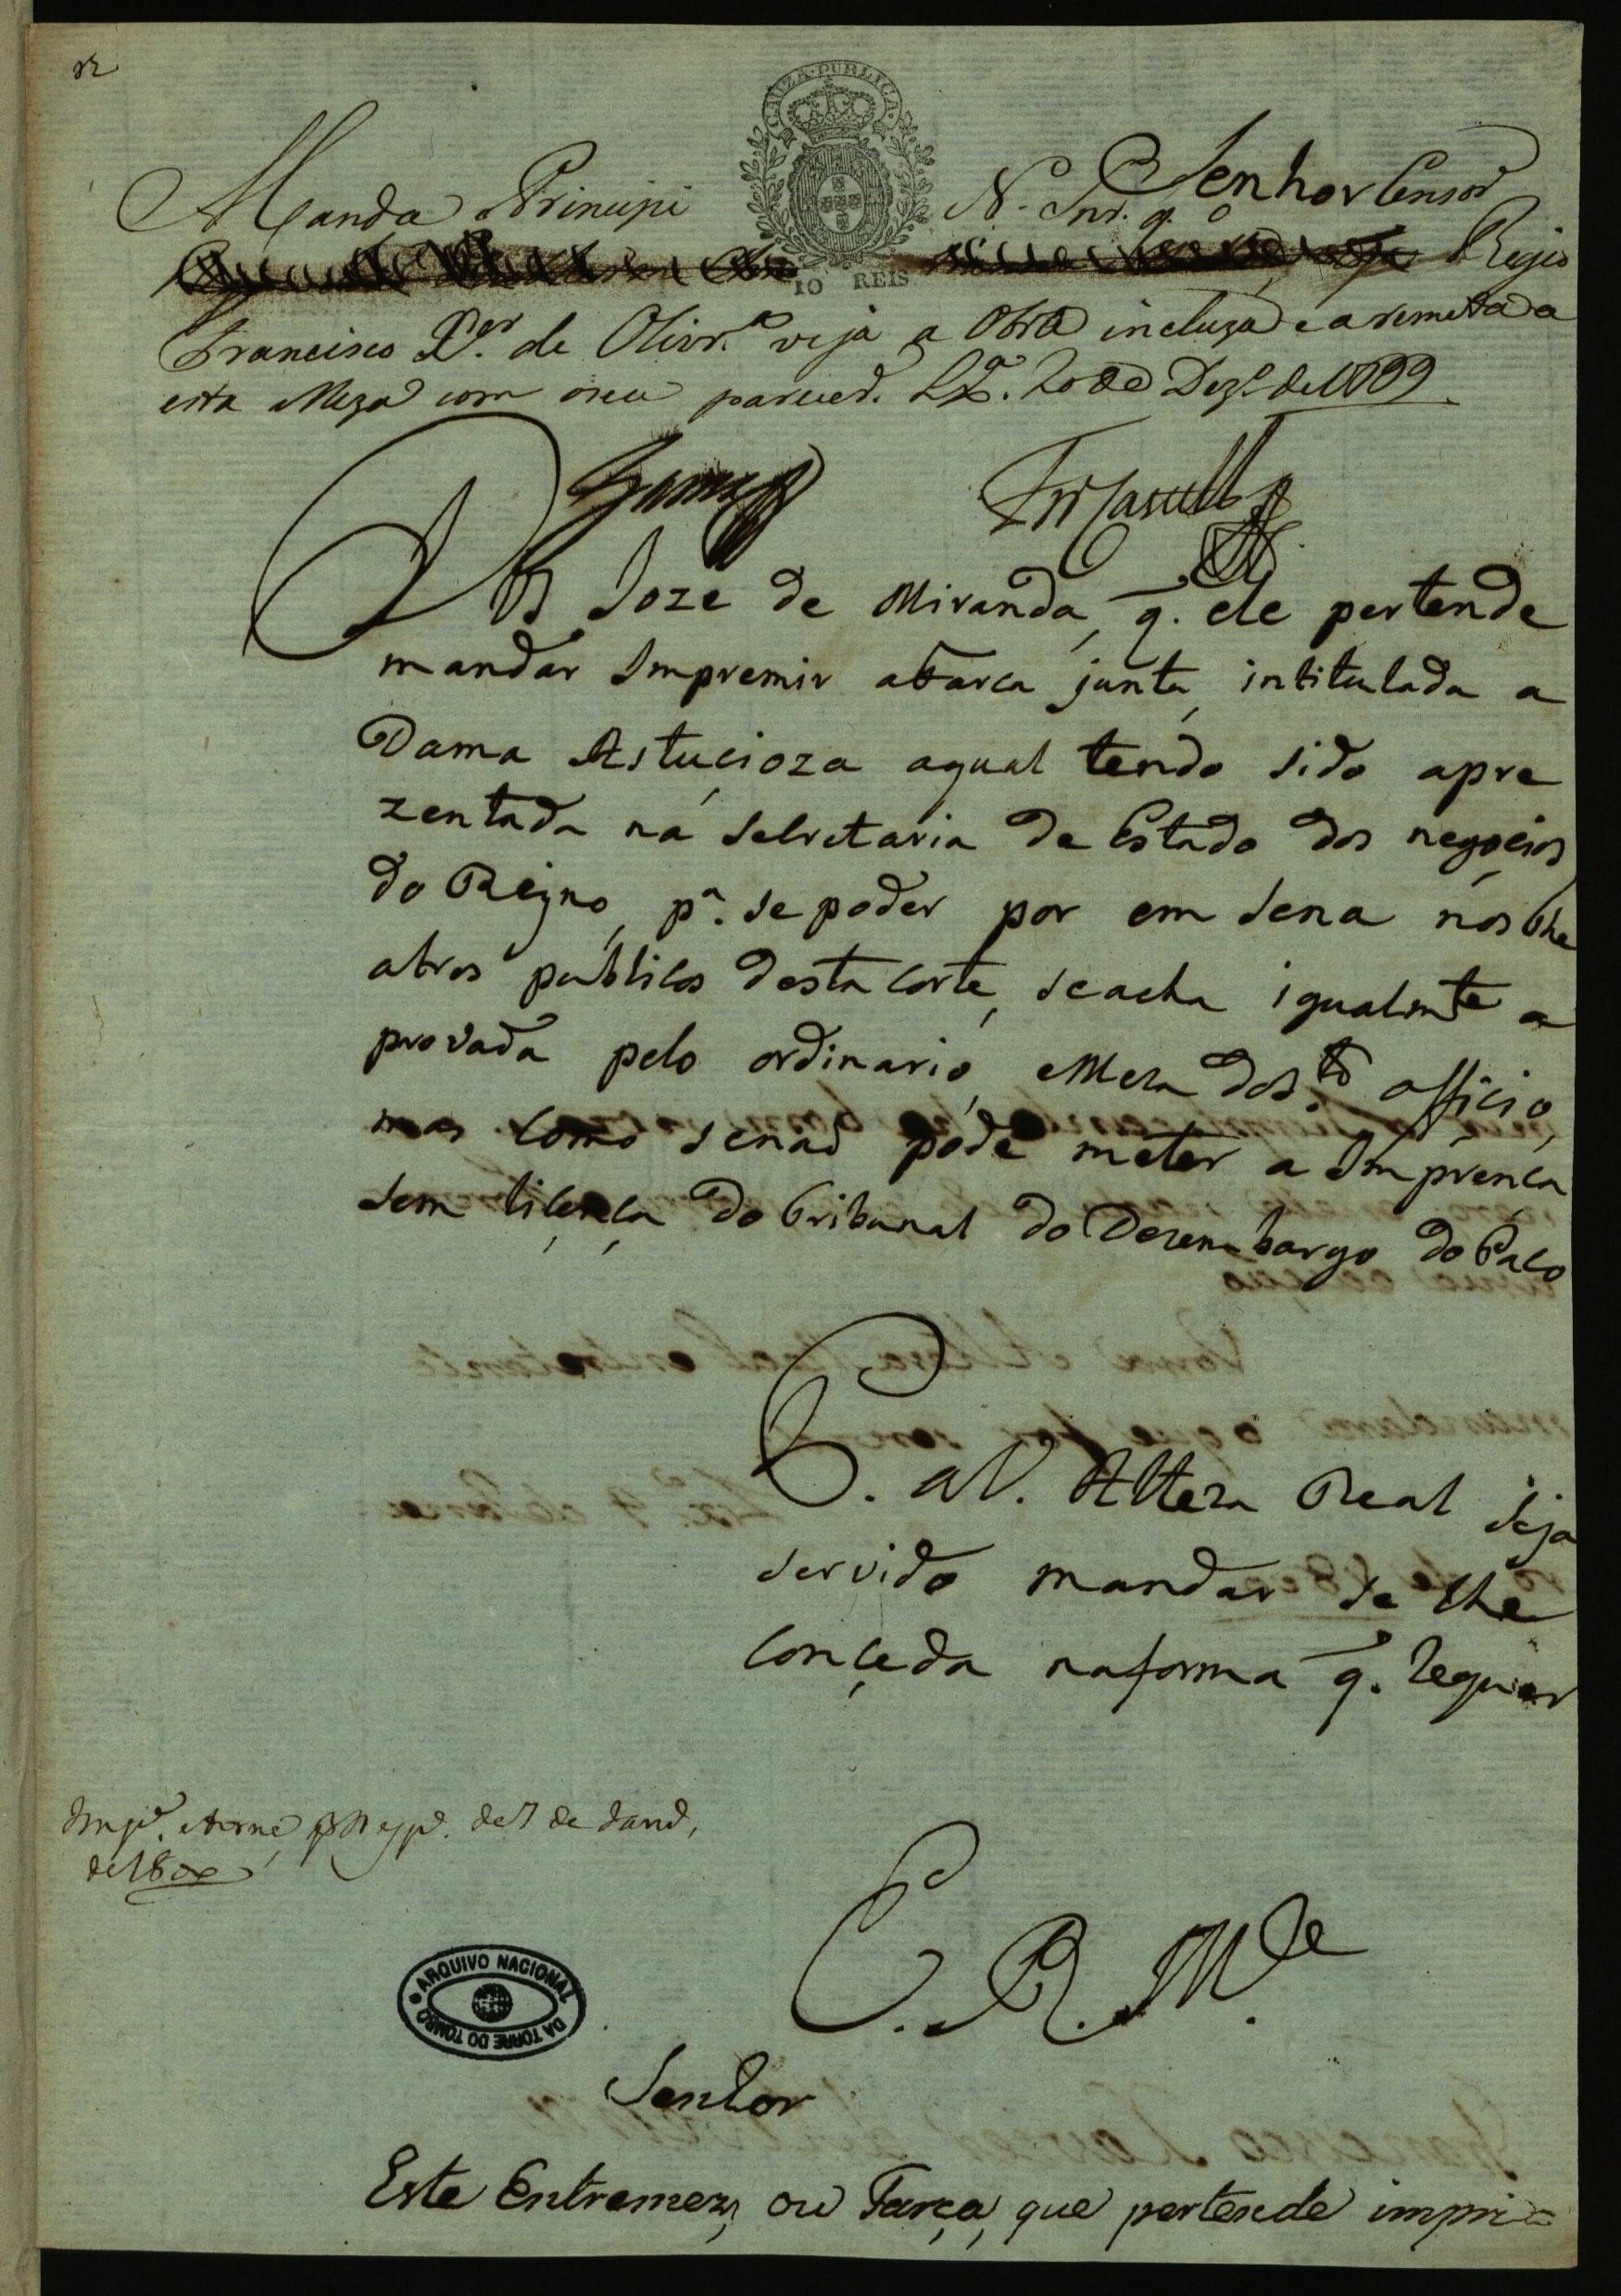 CAUZA PUBLICA
10 REIS
Senhor
Manda o Principi N. Snr. q. o Censor
Regio
Francisco X.er de Olivr.a veja a Obra incluza e a remetta a
esta Meza com o seu parecer. Lx.a 20 de Dez.o de 1799
Diz Joze de Miranda, q. ele pertende
mandar Impremir a farca junta, intitulada a
Dama Astucioza aqual tendo sido apre
zentada na Secretaria de Estado dos negocios
do Reyno, p.a se poder por em Sena nos the
atros publicos desta corte, se acha igualm.te a
provada pelo ordinario, e Meza do S.to officio,
mas como se naõ pode meter a Imprença
sem liçença do Tribunal do Dezembargo do Paco
P. a V. Alteza Real Seja
servido mandar se lhe
conçeda na forma q. requer
de 7 de Janr.o
de 1800
E. R. M.ce
ARQUIVO NACIONAL DA TORRE DO TOMBO
Senhor
Este Entremez, ou Farça, que pertende impri=